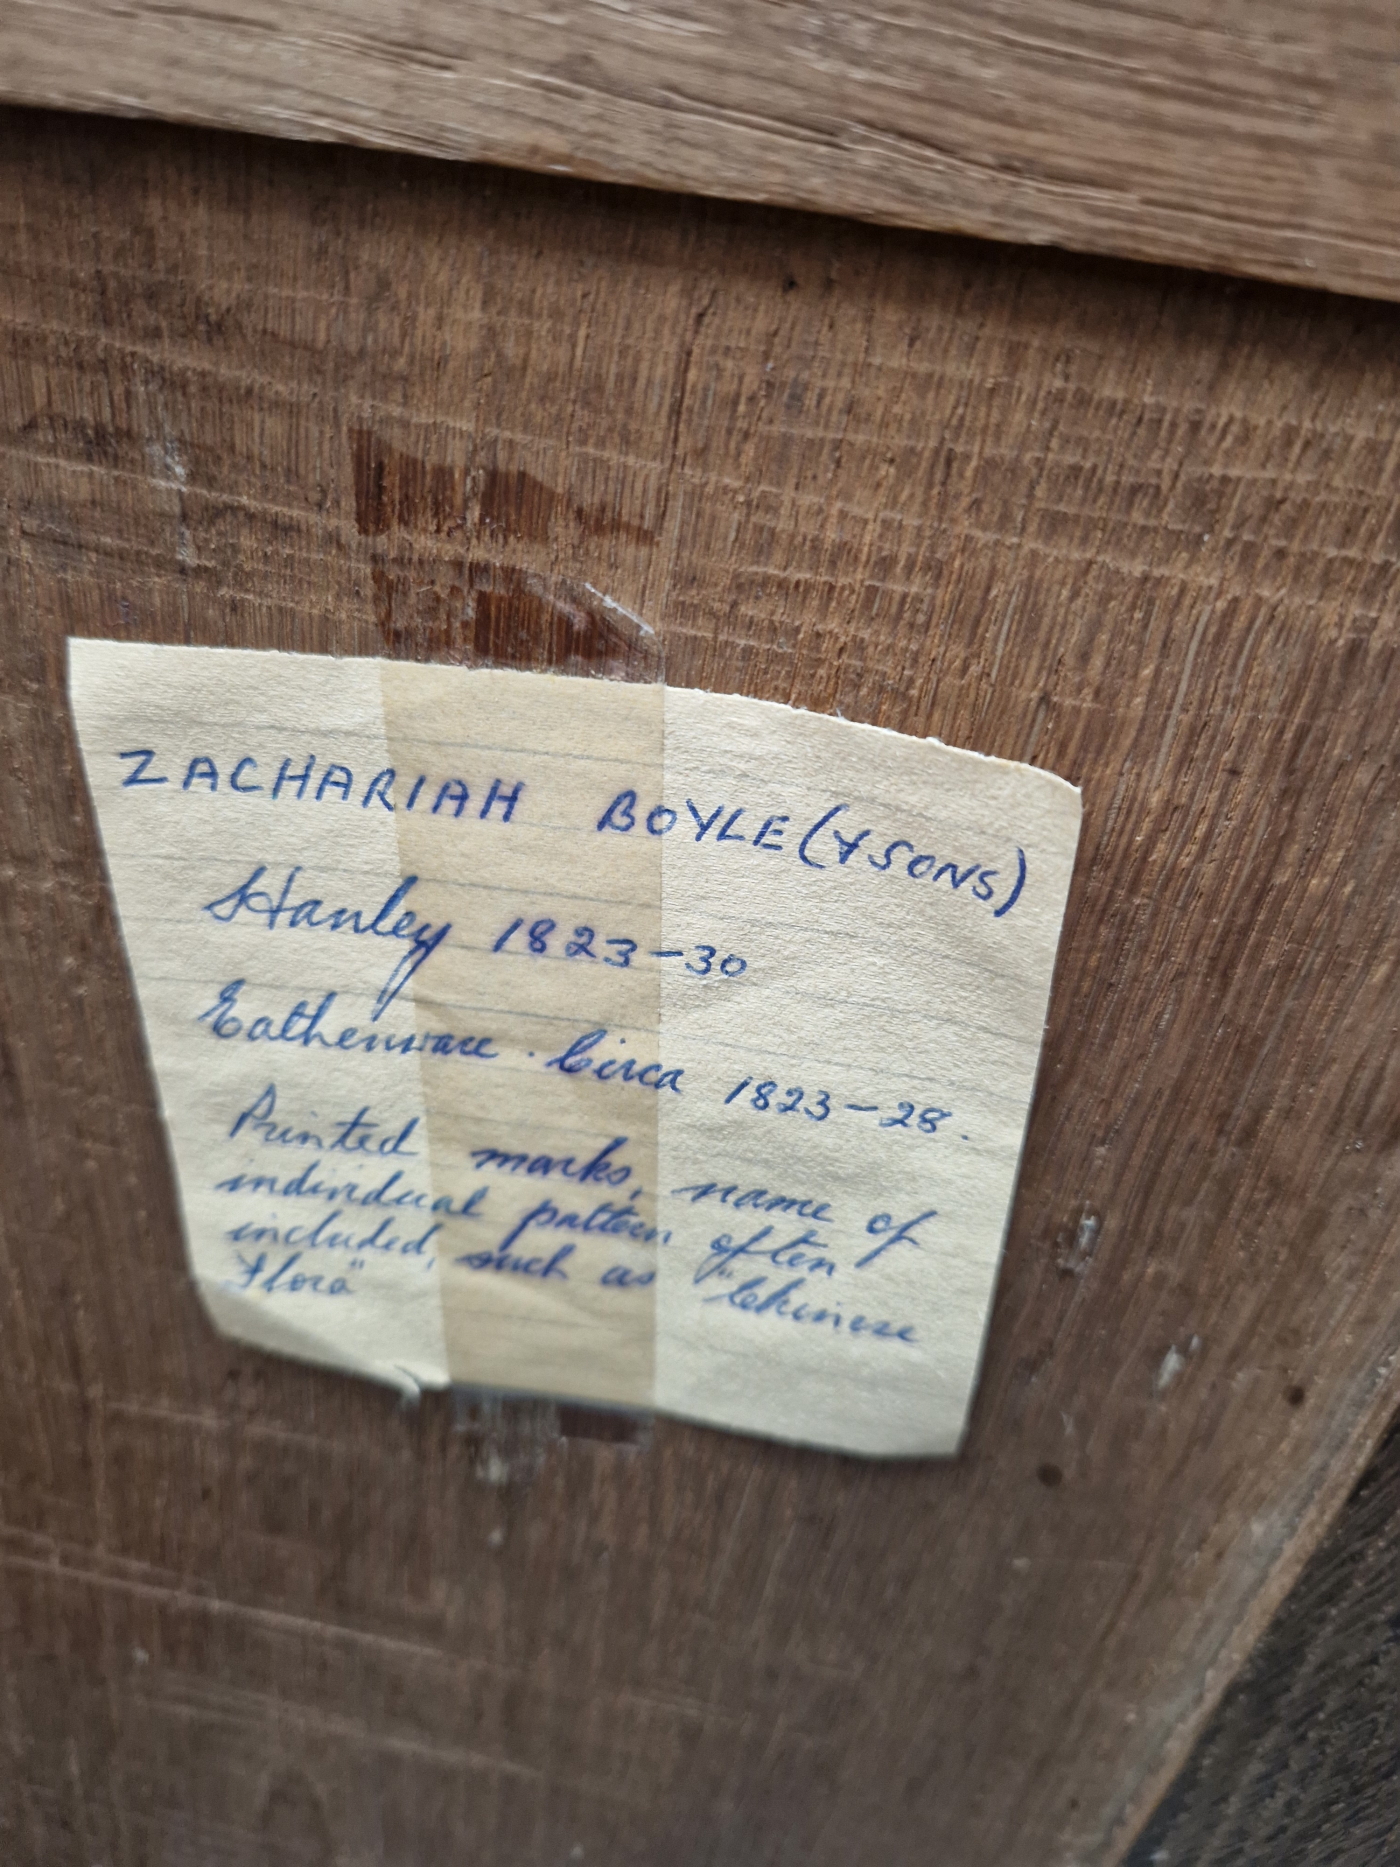 ZACHARIAH BOYLE (& SONS)
Hanley 1823-30
Eathenware. Circa 1823-28.
Printed marks, name of
individual pattern often
included, such as "Chinese
Flora"